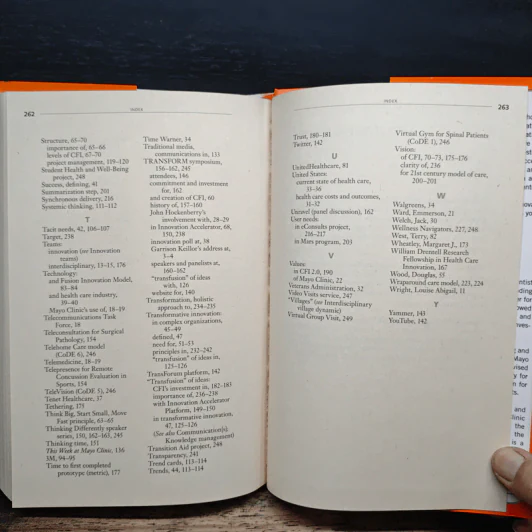 262
INDEX
Structure, 65–70
importance of, 65–66
levels of CFI, 67–70
project management, 119–120
Student Health and Well-Being
project, 248
Success, defining, 41
Summation step, 201
Synchronous delivery, 216
Systemic thinking, 111–112
T
Tacit needs, 42, 106–107
Target, 238
Teams:
innovation (see Innovation
teams)
interdisciplinary, 13–15, 178
Technology:
and Fusion Innovation Model,
83–84
and health care industry,
39–40
Mayo Clinic's use of, 18–19
Telecommunications Task
Force, 18
Teleconsultation for Surgical
Pathology, 154
Telehome Care model
(CoDE 6), 246
Telemedicine, 18–19
Telepresence for Remote
Concussion Evaluation in
Sports, 154
TeleVision (CoDE 5), 246
Tenet Healthcare, 37
Tethering, 175
Think Big, Start Small, Move
Fast principle, 63–65
Thinking Differently speaker
series, 150, 162–163, 245
Thinking time, 151
This Week at Mayo Clinic, 136
3M, 94–95
Time to first completed
prototype (metric), 177
Time Warner, 34
Traditional media,
communications in, 133
TRANSFORM symposium,
156–162, 245
attendees, 146
commitment and investment
for, 162
and creation of CFI, 60
history of, 157–160
John Hockenberry's
involvement with, 28–29
in Innovation Accelerator, 68,
150, 238
innovation poll at, 38
Garrison Keillor's address at,
3–4
speakers and panelists at,
160–162
"transfusion" of ideas
with, 126
website for, 140
Transformation, holistic
approach to, 234–235
Transformative innovation:
in complex organizations,
45–49
defined, 47
need for, 51–53
principles in, 232–242
"transfusion" of ideas in,
125–126
TransForum platform, 142
"Transfusion" of ideas:
CFI's investment in, 182–183
importance of, 236–238
with Innovation Accelerator
Platform, 149–150
in transformative innovation,
47, 125–126
(See also Communication(s);
Knowledge management)
Transition Aid project, 248
Transparency, 241
Trend cards, 113–114
Trends, 44, 113–114
INDEX
263
Trust, 180–181
Twitter, 142
U
UnitedHealthcare, 81
United States:
current state of health care,
33–36
health care costs and outcomes,
31–32
Unravel (panel discussion), 162
User needs:
in eConsults project,
216–217
in Mars program, 203
V
Values:
in CFI 2.0, 190
of Mayo Clinic, 22
Veterans Administration, 32
Video Visits service, 247
"Villages" (see Interdisciplinary
village dynamic)
Virtual Group Visit, 249
Virtual Gym for Spinal Patients
(CoDE 1), 246
Vision:
of CFI, 70–73, 175–176
clarity of, 236
for 21st century model of care,
200–201
W
Walgreens, 34
Ward, Emmerson, 21
Welch, Jack, 30
Wellness Navigators, 227, 248
West, Terry, 82
Wheatley, Margaret J., 173
William Drentell Research
Fellowship in Health Care
Innovation, 167
Wood, Douglas, 55
Wraparound care model, 223, 224
Wright, Louise Abigail, 11
Y
Yammer, 143
YouTube, 142